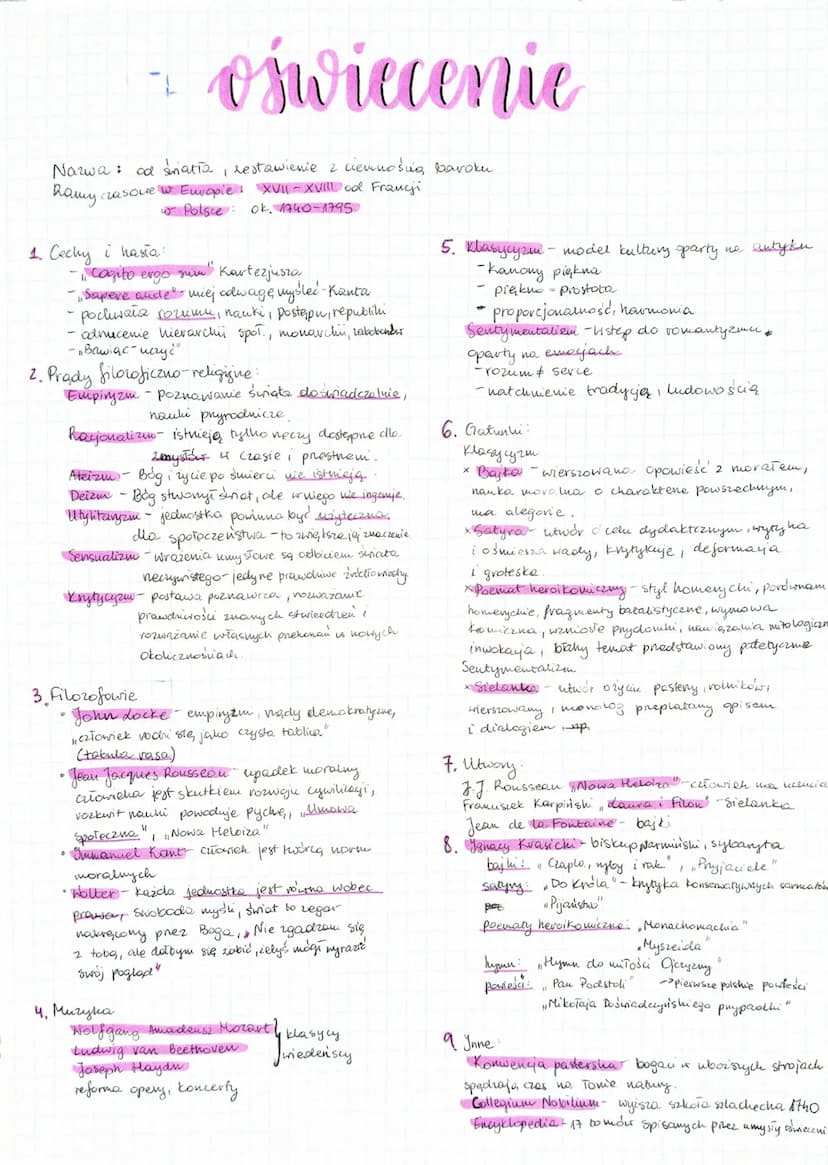 oświecenie
Nazwa: od światła, zestawienie z ciemnością baroku
Ramy czasowe w Europie: XVII-XVIII od Francji
w Polsce: ok. 1740-1795
1. Cechy i hasła:
- "Cogito ergo sum" Kartezjusza
- "Sapere aude" - miej odwagę myśleć - Kanta
- pochwała rozumu, nauki, postępu, republiki
- odrzucenie hierarchii społ., monarchii, zabobonów
- "Bawiąc - uczyć"
2. Prądy filozoficzno-religijne:
Empiryzm - poznawanie świata doświadczalnie,
nauki przyrodnicze.
Racjonalizm - istnieją tylko rzeczy dostępne dla
zmysłów w czasie i przestrzeni.
Ateizm - Bóg i życie po śmierci nie istnieją.
Deizm - Bóg stworzył świat, ale w niego nie ingeruje.
Utylitaryzm - jednostka powinna być użyteczna
dla społeczeństwa - to zwiększa jej znaczenie.
Sensualizm - wrażenia umysłowe są odbiciem świata
rzeczywistego - jedyne prawdziwe źródło wiedzy
Krytycyzm - postawa poznawcza, rozważanie
prawdziwości znanych stwierdzeń i
rozważanie własnych przekonań w nowych
okolicznościach.
3. Filozofowie
• John Locke - empiryzm, rządy demokratyczne,
"człowiek rodzi się jako czysta tablica"
(tabula rasa)
• Jean Jacques Rousseau - upadek moralny
człowieka jest skutkiem rozwoju cywilizacji,
rozkwit nauki powoduje pychę, "Umowa
społeczna", "Nowa Heloiza"
• Immanuel Kant - człowiek jest twórcą norm
moralnych
• Wolter - każda jednostka jest równa wobec
prawa, swoboda myśli, świat to zegar
nakręcony przez Boga, "Nie zgadzam się
z tobą, ale dałbym się zabić, żebyś mógł wyrazić
swój pogląd"
4. Muzyka
Wolfgang Amadeusz Mozart
Ludwig van Beethoven
Joseph Haydn
klasycy
wiedeńscy
reforma opery, koncerty
5. Klasycyzm - model kultury oparty na antyku
- kanony piękna
- piękno = prostota
- proporcjonalność, harmonia
Sentymentalizm - wstęp do romantyzmu,
oparty na emocjach
- rozum ≠ serce
- natchnienie tradycją, ludowością
6. Gatunki:
Klasycyzm
x Bajka - wierszowana opowieść z morałem,
nauka moralna o charakterze powszechnym,
ma alegorie.
x Satyra - utwór o celu dydaktycznym, wytyka
i ośmiesza wady, krytykuje, deformacja
i groteska.
x Poemat heroikomiczny - styl homerycki, porównan
homeryckie, fragmenty batalistyczne, wymowa
komiczna, wzniosłe przydomki, nawiązania mitologiczn
inwokacja, błahy temat przedstawiony patetycznie
Sentymentalizm
x Sielanka - utwór o życiu pasterzy, rolników,
wierszowany, monolog przeplatany opisem
i dialogiem
7. Utwory:
J.J. Rousseau "Nowa Heloiza" - człowiek ma uczucia
Franciszek Karpiński "Laura i Filon" - sielanka
Jean de la Fontaine - bajki
8. Ignacy Krasicki - biskup warmiński, sybaryta
bajki: "Czapla, ryby i rak", "Przyjaciele"
satyry: "Do Króla" - krytyka konserwatywnych sarmatów
"Pijaństwo"
poematy heroikomiczne: "Monachomachia"
"Myszeida"
hymn: "Hymn do miłości Ojczyzny"
powieści: "Pan Podstoli" → pierwsze polskie powieści
"Mikołaja Doświadczyńskiego przypadki"
9. Inne
Konwencja pasterska - bogaci w uboższych strojach
spędzają czas na łonie natury.
Collegium Nobilium - wyższa szkoła szlachecka 1740
Encyklopedia - 17 tomów spisanych przez umysły oświeceni